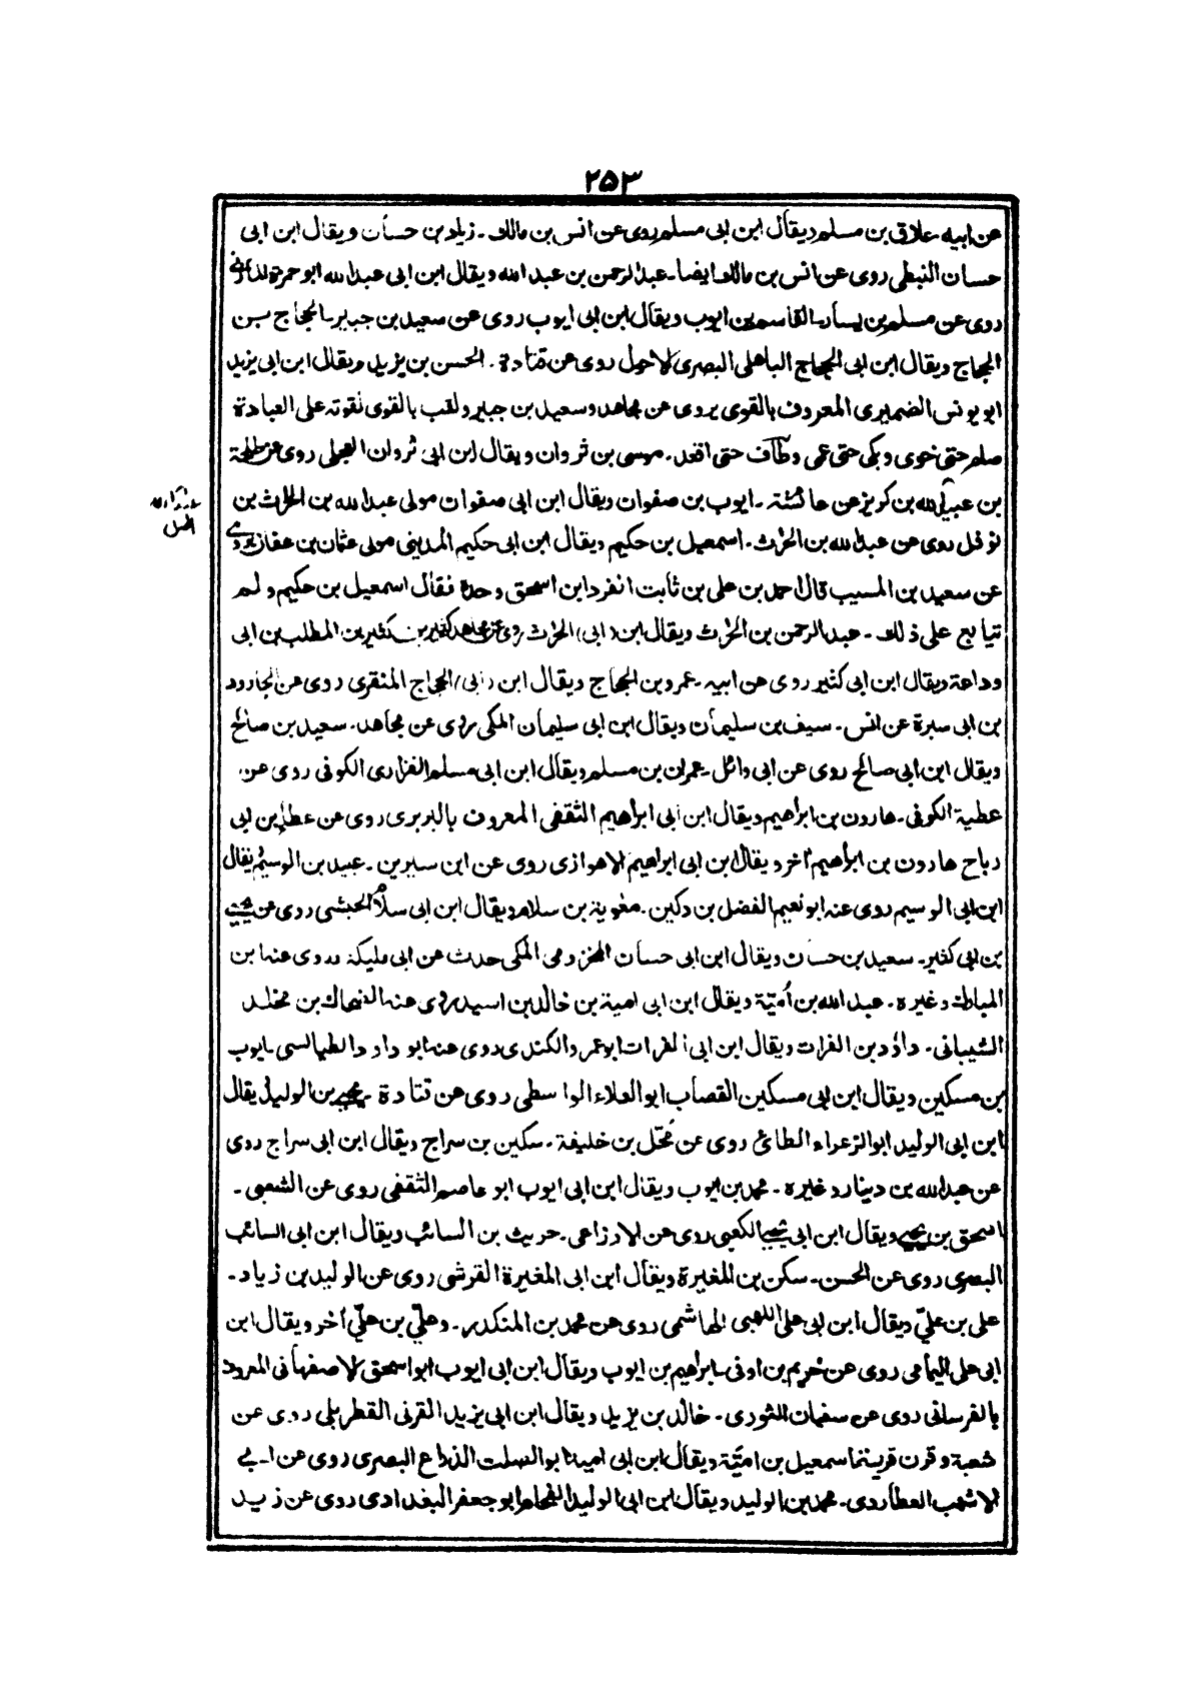 ٢٥٣
عن ابيه علاق بن مسلم ويقال ابن ابى مسلم روى عن انس بن مالك ـ زياد بن حسان ويقال ابن ابى
حسان النبطى روى عن انس بن مالك ايضا ـ عبد الرحمن بن عبد الله ويقال ابن ابى عبد الله ابو حمرة المازنى
روى عن مسلم بن يسار ـ القاسم بن ايوب ويقال ابن ابى ايوب روى عن سعيد بن جبير ـ الحجاج بن
الحجاج ويقال ابن ابى الحجاج الباهلى البصرى الاحول روى عن قتادة ـ الحسن بن يزيد ويقال ابن ابى يزيد
ابو يونس الضميرى المعروف بالقوى يروى عن مجاهد وسعيد بن جبير ولقب بالقوى لقوته على العبادة
صام حتى خوى وبكى حتى عمى وطاف حتى اقعد ـ موسى بن ثروان ويقال ابن ابى ثروان العجلى روى عن طلحة
بن عبيد الله بن كريز عن عائشة ـ ايوب بن صفوان ويقال ابن ابى صفوان مولى عبد الله بن الحرث بن
نوفل روى عن عبد الله بن الحرث ـ اسمعيل بن حكيم ويقال ابن ابى حكيم المدينى مولى عثمان بن عفان يروى
عن سعيد بن المسيب قال احمد بن على بن ثابت انفرد ابن اسحق وحده فقال اسمعيل بن حكيم ولم
تيابع على ذلك ـ عبد الرحمن بن الحرث ويقال ابن (ابى) الحرث روى عن مجاهد كثير بن كثير بن المطلب بن ابى
وداعة ويقال ابن ابى كثير روى عن ابيه ـ عمرو بن الحجاج ويقال ابن (ابى) الحجاج المنقرى روى عن الجارود
بن ابى سبرة عن انس ـ سيف بن سليمان ويقال ابن ابى سليمان المكى روى عن مجاهد ـ سعيد بن صالح
ويقال ابن ابى صالح روى عن ابى وائل ـ عمران بن مسلم ويقال ابن ابى مسلم الفزارى الكوفى روى عن
عطية الكوفى ـ هارون بن ابراهيم ويقال ابن ابى ابراهيم الثقفى المعروف بالبربرى روى عن عطاء بن ابى
رباح هارون بن ابراهيم آخر ويقال ابن ابى ابراهيم الاهوازى روى عن ابن سيرين ـ عبيد بن الوسيم ويقال
ابن ابى الوسيم روى عنه ابو نعيم الفضل بن دكين ـ معوية بن سلام ويقال ابن ابى سلام الحبشى روى عن يحيى
بن ابى كثير ـ سعيد بن حسان ويقال ابن ابى حسان المخزومى المكى حدث عن ابى مليكة وروى عنه ابن
المبارك وغيره ـ عبد الله بن أميّة ويقال ابن ابى امية بن خالد بن اسيد روى عنه الضحاك بن مخلد
الشيبانى ـ داؤد بن الفرات ويقال ابن ابى الفرات ابو عمرو الكندى روى عنه ابو داود الطيالسى ـ ايوب
بن مسكين ويقال ابن ابى مسكين القصاب ابو العلاء الواسطى روى عن قتادة ـ يحيى بن الوليد ويقال
ابن ابى الوليد ابو الزعراء الطائى روى عن مُحَلّ بن خليفة ـ سكين بن سراج ويقال ابن ابى سراج روى
عن عبد الله بن دينار وغيره ـ محمد بن ايوب ويقال ابن ابى ايوب ابو عاصم الثقفى روى عن الشعبى ـ
اسحق بن يحيى ويقال ابن ابى يحيى الكعبى روى عن الاوزاعى ـ حريث بن السائب ويقال ابن ابى السائب
البصرى روى عن الحسن ـ سكن بن المغيرة ويقال ابن ابى المغيرة القرشى روى عن الوليد بن زياد ـ
على بن علىّ ويقال ابن ابى على اللهبى الهاشمى روى عن محمد بن المنكدر ـ وعلىّ بن علىّ آخر ويقال ابن
ابى على اليمامى روى عن خريم بن اوفى ـ ابراهيم بن ايوب ويقال ابن ابى ايوب ابو اسحق الاصفهانى المعروف
بالفرسانى روى عن سفيان الثورى ـ خالد بن يزيد ويقال ابن ابى يزيد القرنى القطربلى روى عن
شعبة وقرن قريتنا اسمعيل بن اميّة ويقال ابن ابى امية ابو الصلت الذراع البصرى روى عن ابى
الاشهب العطاردى ـ محمد بن الوليد ويقال ابن ابى الوليد الفحام ابو جعفر البغدادى روى عن زيد